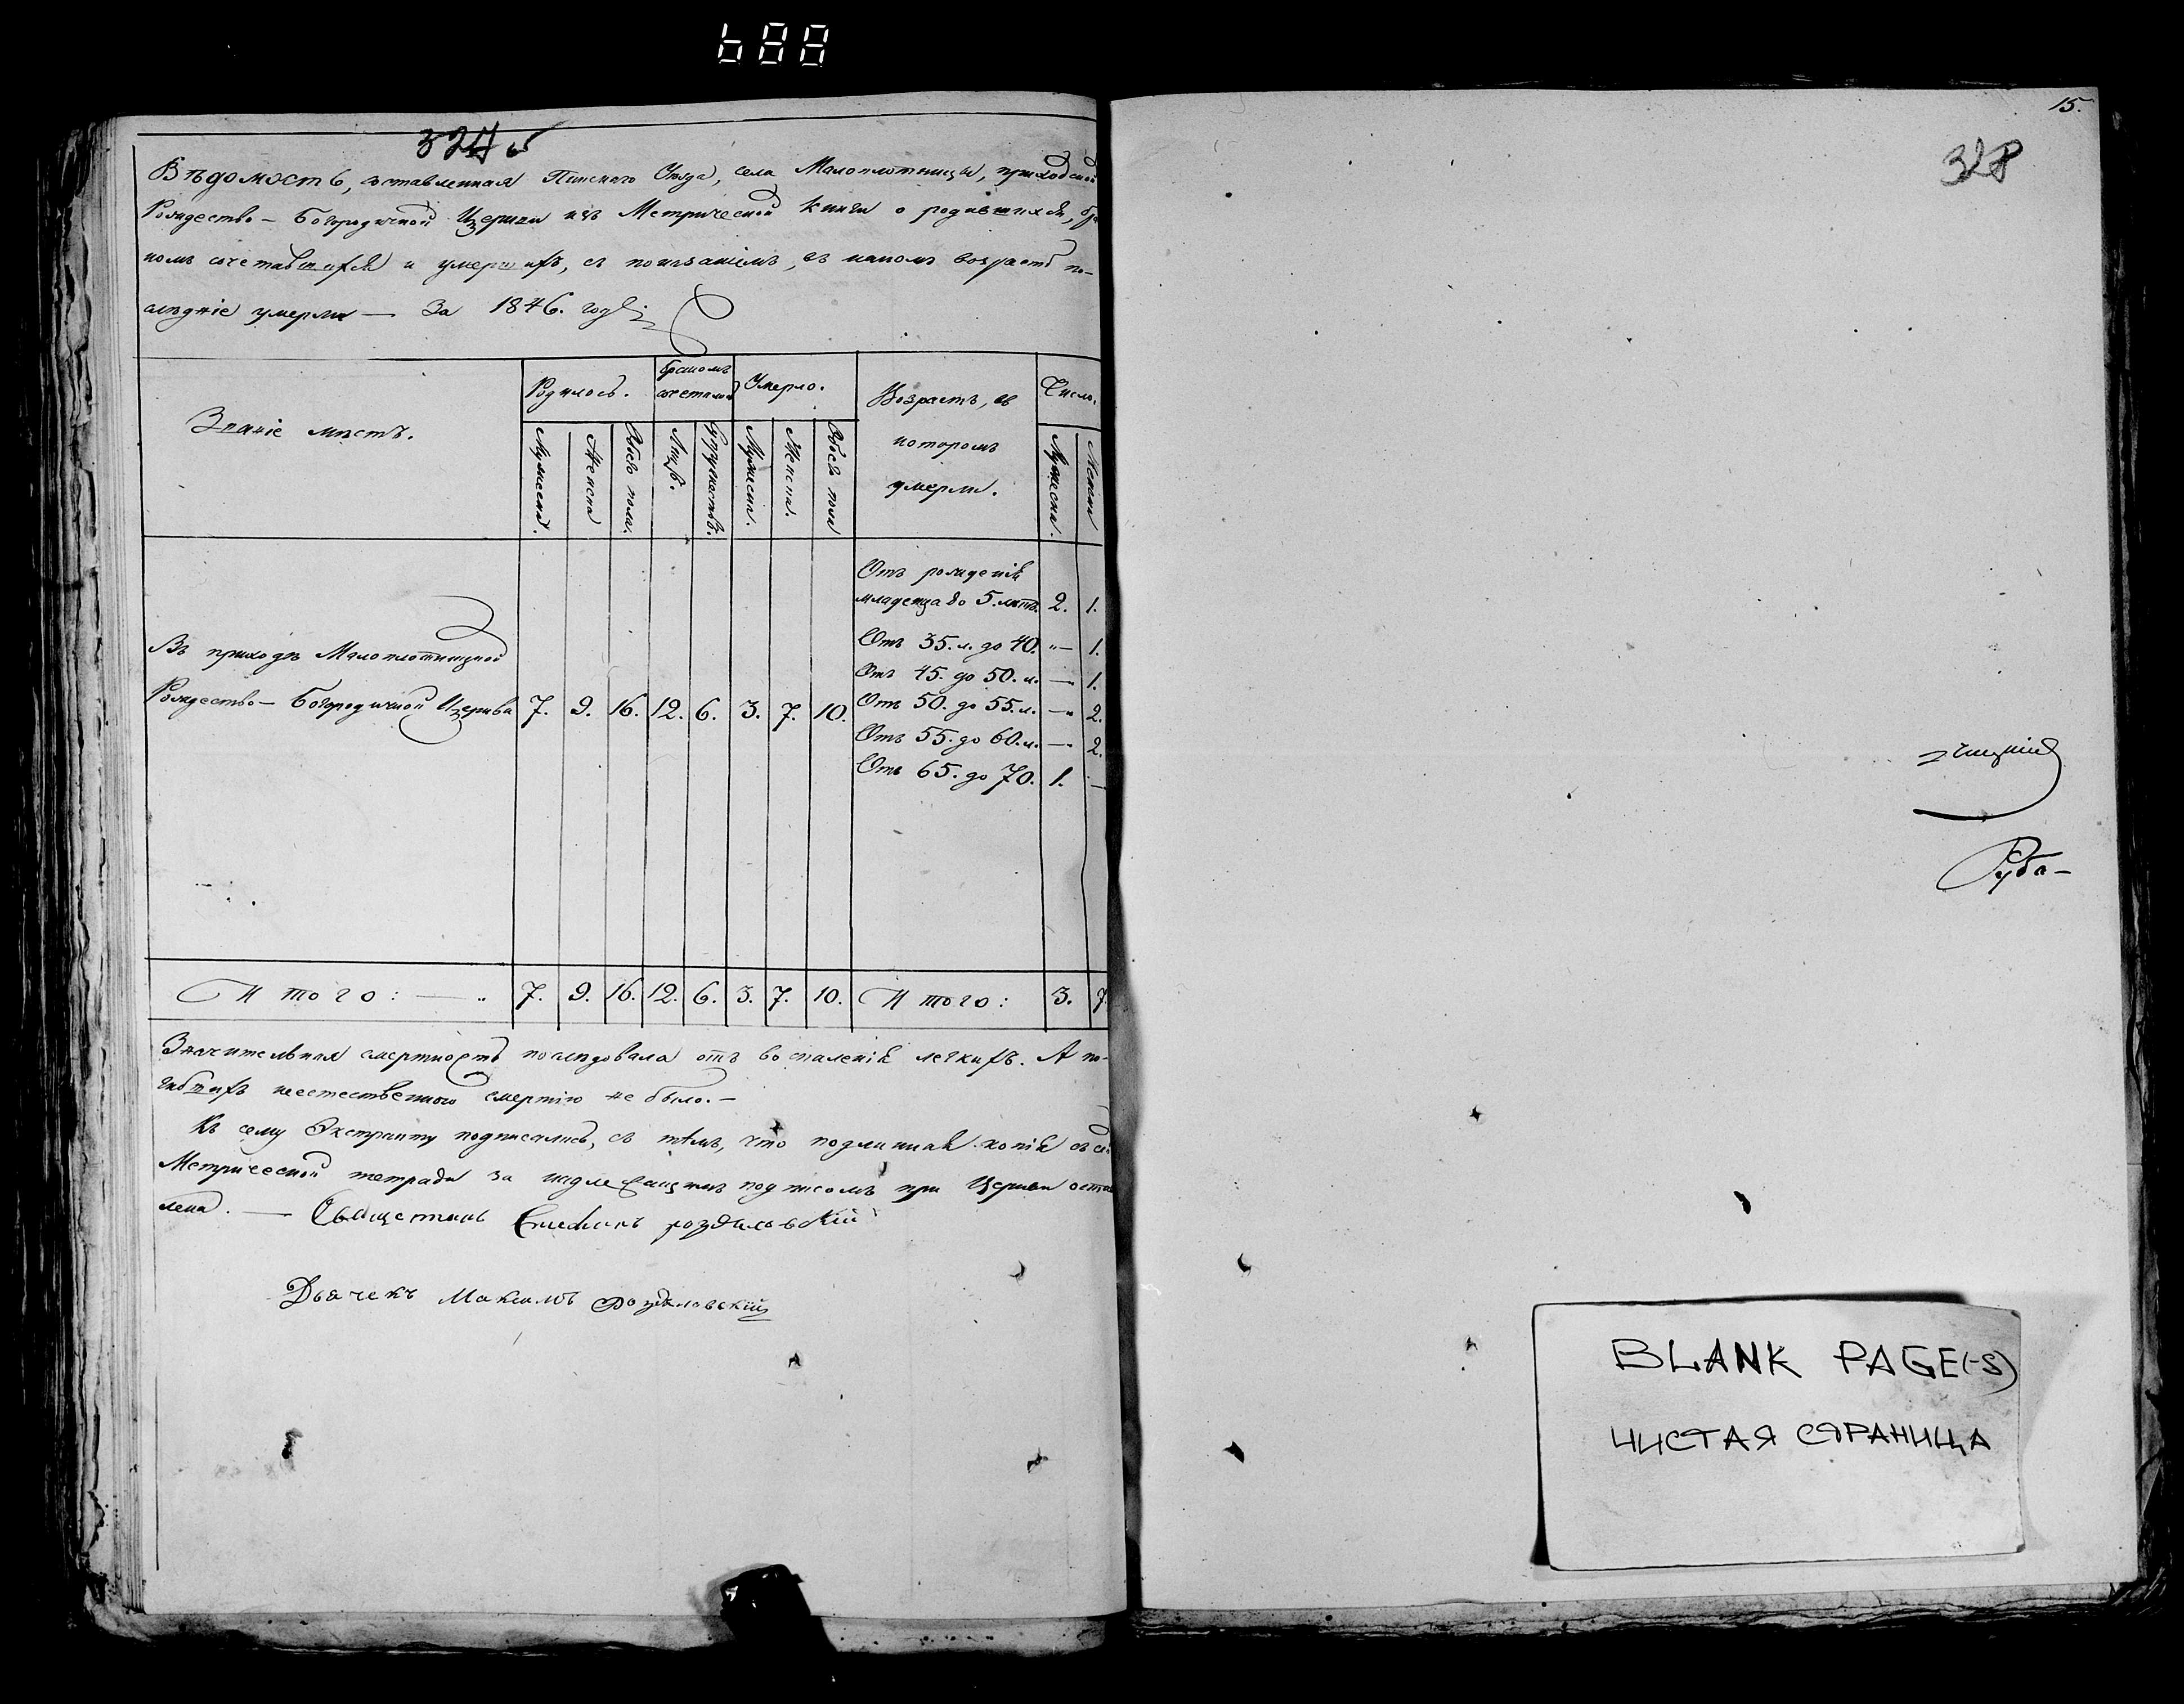 688
Вѣдомость, составленная Пинскаго Уѣзда, села Малоплотницы, приходской
Рождество-Богородичной Церкви изъ Метрической Книги о родившихся, бра
комъ сочетавшихся и умершихъ, съ показаніемъ, въ какомъ возрастѣ по-
слѣдніе умерли — За 1846. годъ
Званіе мѣстъ.
Родилось.
Бракомъ
сочетались
Умерло.
Возрастъ, въ
которомъ
умерли.
Число.
Мужеска.
Женска
Обоего пола.
Лицъ.
Супружествъ.
Мужеска.
Женска.
Обоего пола
Мужеска.
Женска
Въ приходѣ Малоплотницкой
Рождество-Богородичной Церкви 7. 9. 16. 12. 6. 3. 7. 10.
Отъ рожденія
младенца до 5. лѣтъ. 2. 1.
Отъ 35. л. до 40. „— 1.
Отъ 45. до 50. л. — 1.
Отъ 50. до 55. л. — 2.
Отъ 55. до 60. л. — 2.
Отъ 65. до 70. 1. —
Итого: — 7. 9. 16. 12. 6. 3. 7. 10. Итого: 3. 7
Значительная смертность послѣдовала отъ воспаленія легкихъ. А по-
гибшихъ неестественною смертію не было.—
Къ сему Экстракту подписались, съ тѣмъ, что подлинная копія съ сей
Метрической тетради за надлежащимъ подписомъ при Церкви остав
лена. — Священникъ Роздяловскій
Дьячекъ Максимъ Роздяловскій
15.
328
Руба-
BLANK PAGE(-S)
ЧИСТАЯ СТРАНИЦА